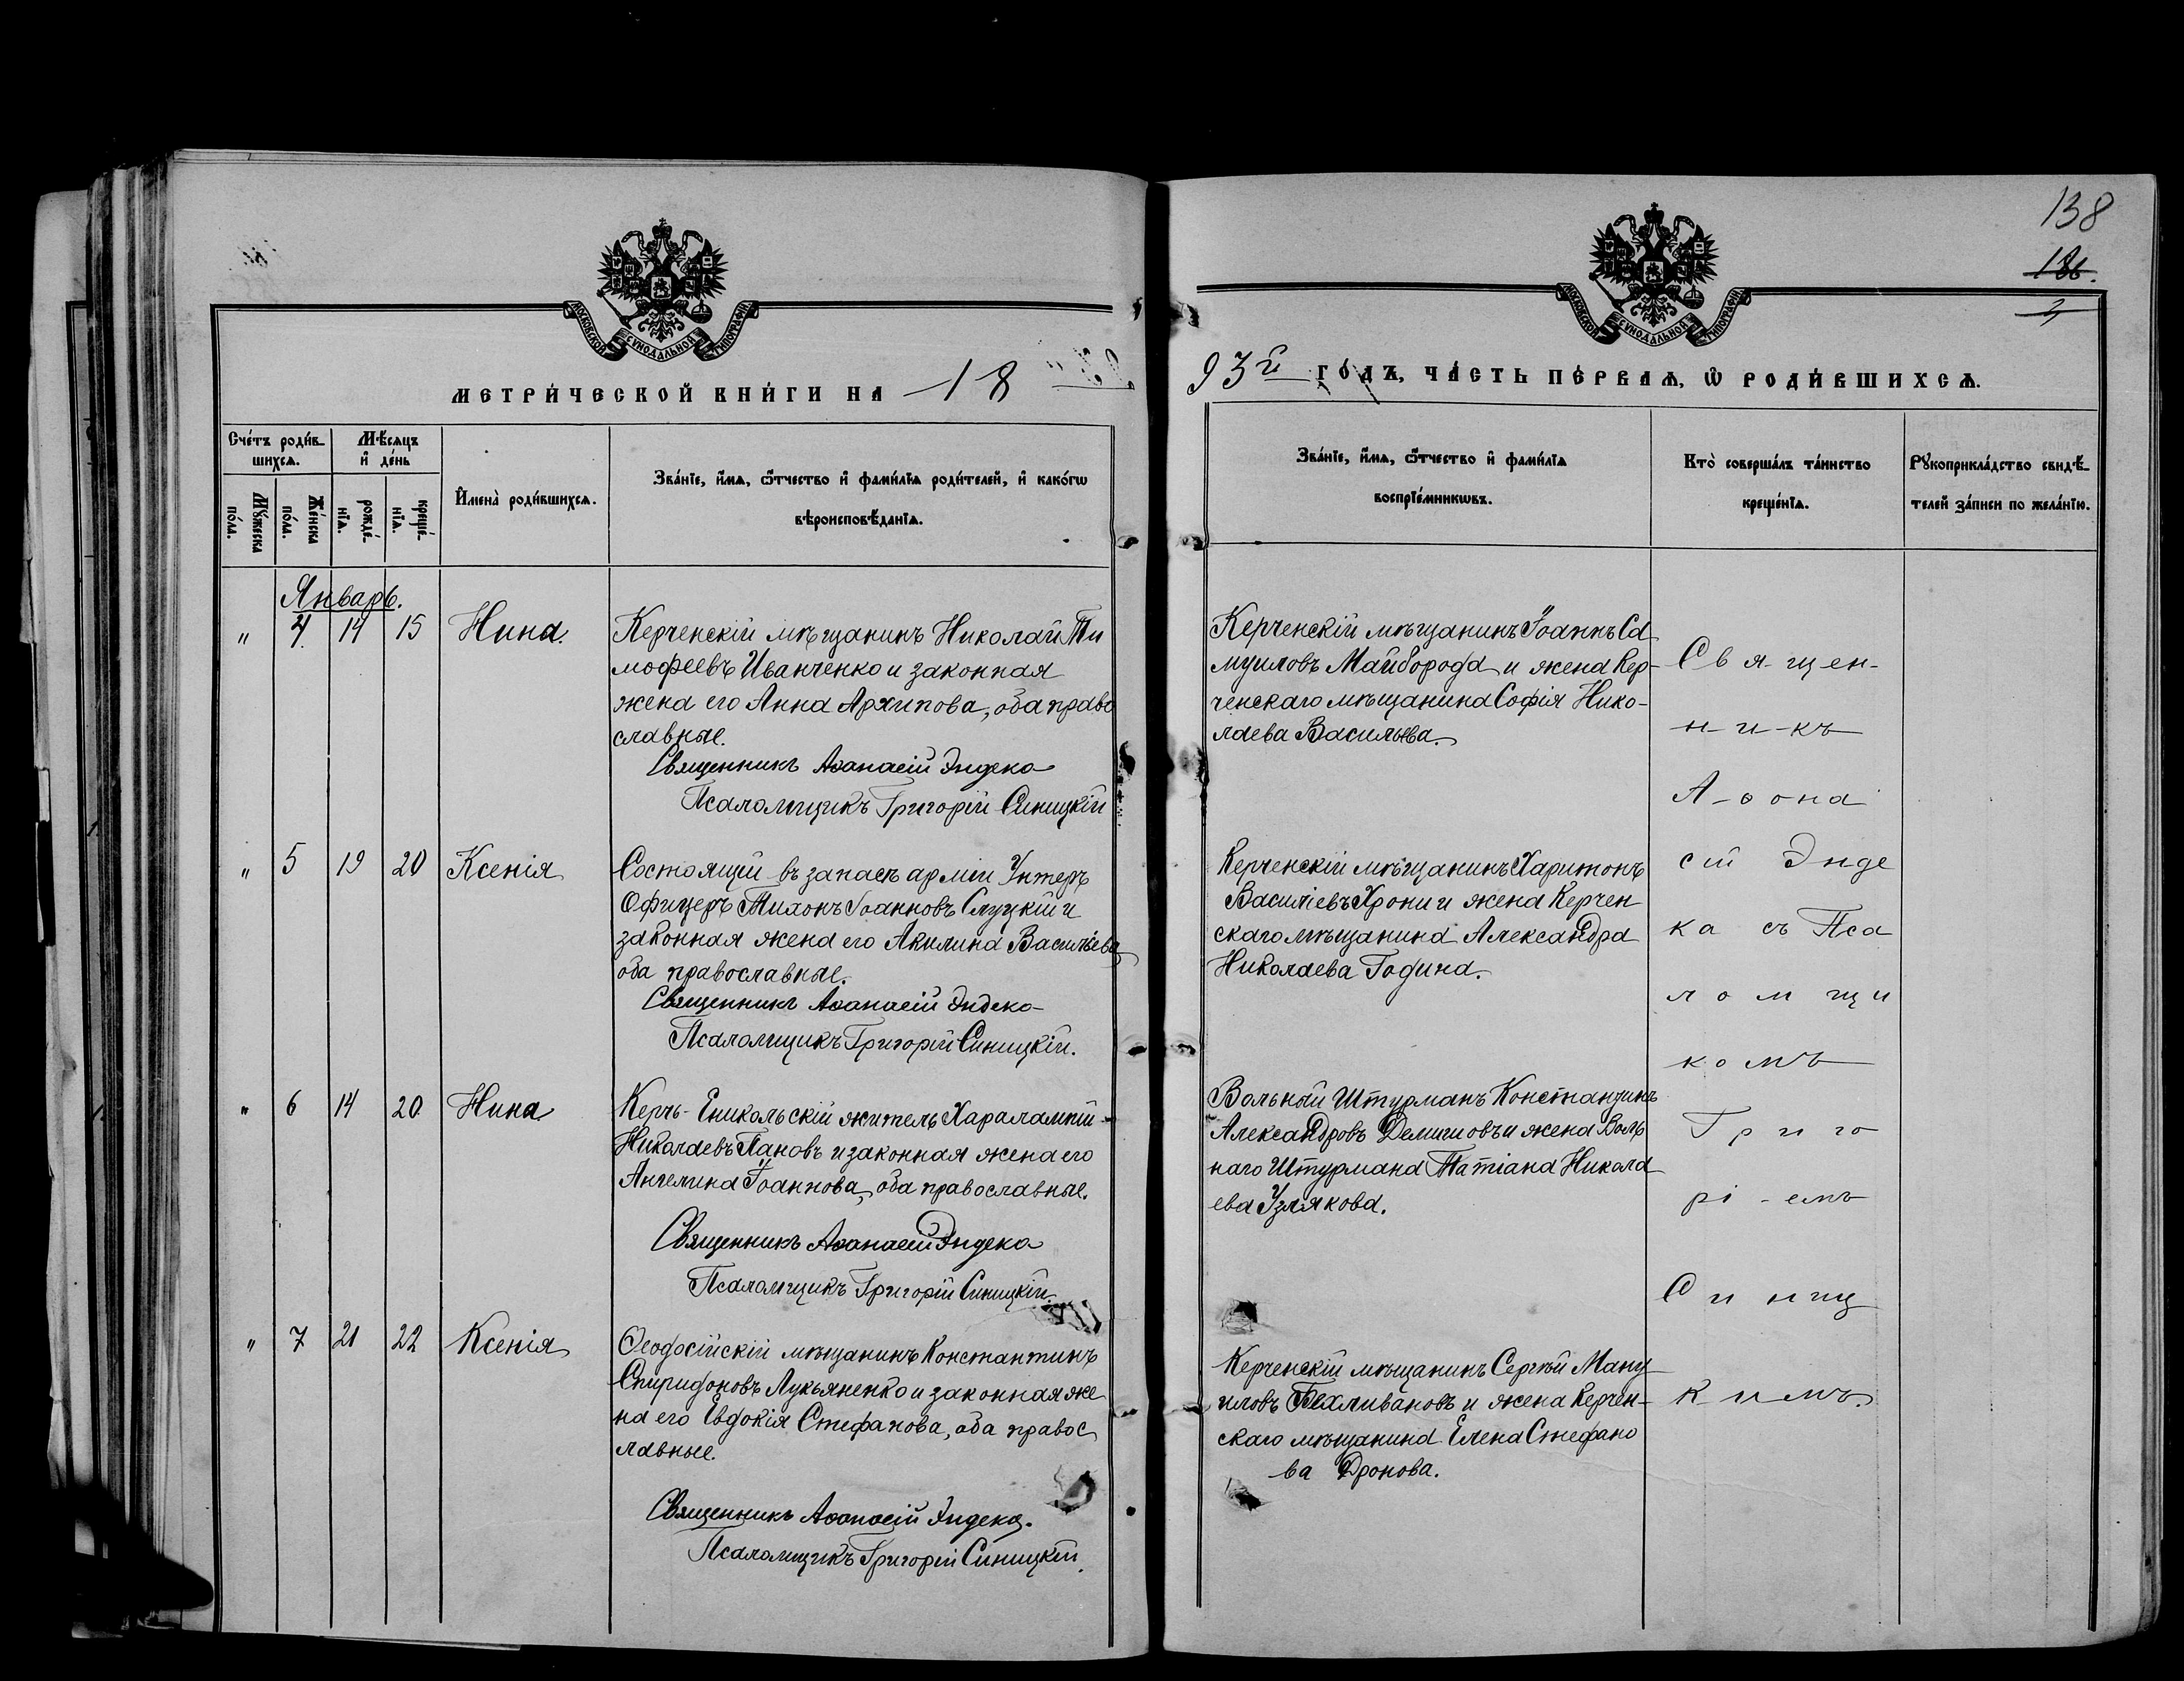 138
186.
МОСКОВСКОЙ СѴНОДАЛЬНОЙ ТИПОГРАФІИ.
МОСКОВСКОЙ СѴНОДАЛЬНОЙ ТИПОГРАФІИ.
МЕТРИ́ЧЕСКОЙ КНИ́ГИ НА 18
93й ГО́ДЪ, ЧА́СТЬ ПЕ́РВАѦ, Ѡ РОДИ́ВШИХСѦ.
Сче́тъ роди́в-
шихсѧ.
Мꙋ́жеска
по́ла.
Же́нска
по́ла.
Мѣ́сяцъ
и҆ де́нь
рожде́-
нїѧ.
креще́-
нїѧ.
И҆мена̀ роди́вшихсѧ.
Зва́нїе, и҆́мѧ, ѻ҆́тчество и҆ фами́лїѧ роди́телей, и҆ како́гѡ
вѣроисповѣ́данїѧ.
Зва́нїе, и҆́мѧ, ѻ҆́тчество и҆ фами́лїѧ
воспрїе́мникѡвъ.
Кто̀ соверша́лъ та́инство
креще́нїѧ.
Рꙋкоприкла́дство свидѣ́-
телей за́писи по жела́нїю.
Январь.
" 4. 14 15 Нина.
Керченскій мѣщанинъ Николай Ти
мофеевъ Иванченко и законная
жена его Анна Архипова, оба право
славные.
Священникъ Аѳанасій Эндека
Псаломщикъ Григорій Синицкій
Керченскій мѣщанинъ Іоаннъ Са
муиловъ Майборода и жена Кер-
ченскаго мѣщанина Софія Нико-
лаева Васильева.
" 5 19 20 Ксенія
Состоящій въ запасѣ арміи Унтеръ
Офицеръ Тихонъ Іоанновъ Слуцкій и
законная жена его Акилина Васильева
оба православные.
Священникъ Аѳанасій Эндека
Псаломщикъ Григорій Синицкій.
Керченскій мѣщанинъ Харитонъ
Василіевъ Хрони и жена Керчен
скаго мѣщанина Александра
Николаева Година.
" 6 14 20 Нина
Керчь-Еникольскій житель Харалампій
Николаевъ Пановъ и законная жена его
Ангелина Іоаннова, оба православные.
Священникъ Аѳанасій Эндека
Псаломщикъ Григорій Синицкій.
Вольный Штурманъ Константинъ
Александровъ Демишовъ и жена Воль
наго Штурмана Татіана Никола
ева Узлякова.
" 7 21 22 Ксенія
Ѳеодосійскій мѣщанинъ Константинъ
Спиридоновъ Лукьяненко и законная же
на его Евдокія Стефанова, оба правос
лавные.
Священникъ Аѳанасій Эндека.
Псаломщикъ Григорій Синицкій.
Керченскій мѣщанинъ Сергѣй Ману
иловъ Бехливановъ и жена Керчен-
скаго мѣщанина Елена Стефано
ва Дронова.
Свя-щен-
н-и-къ
А-ѳана
сій Энде
ка съ Пса
ломщи
комъ
Григо
рі-емъ
Синиц
кимъ.